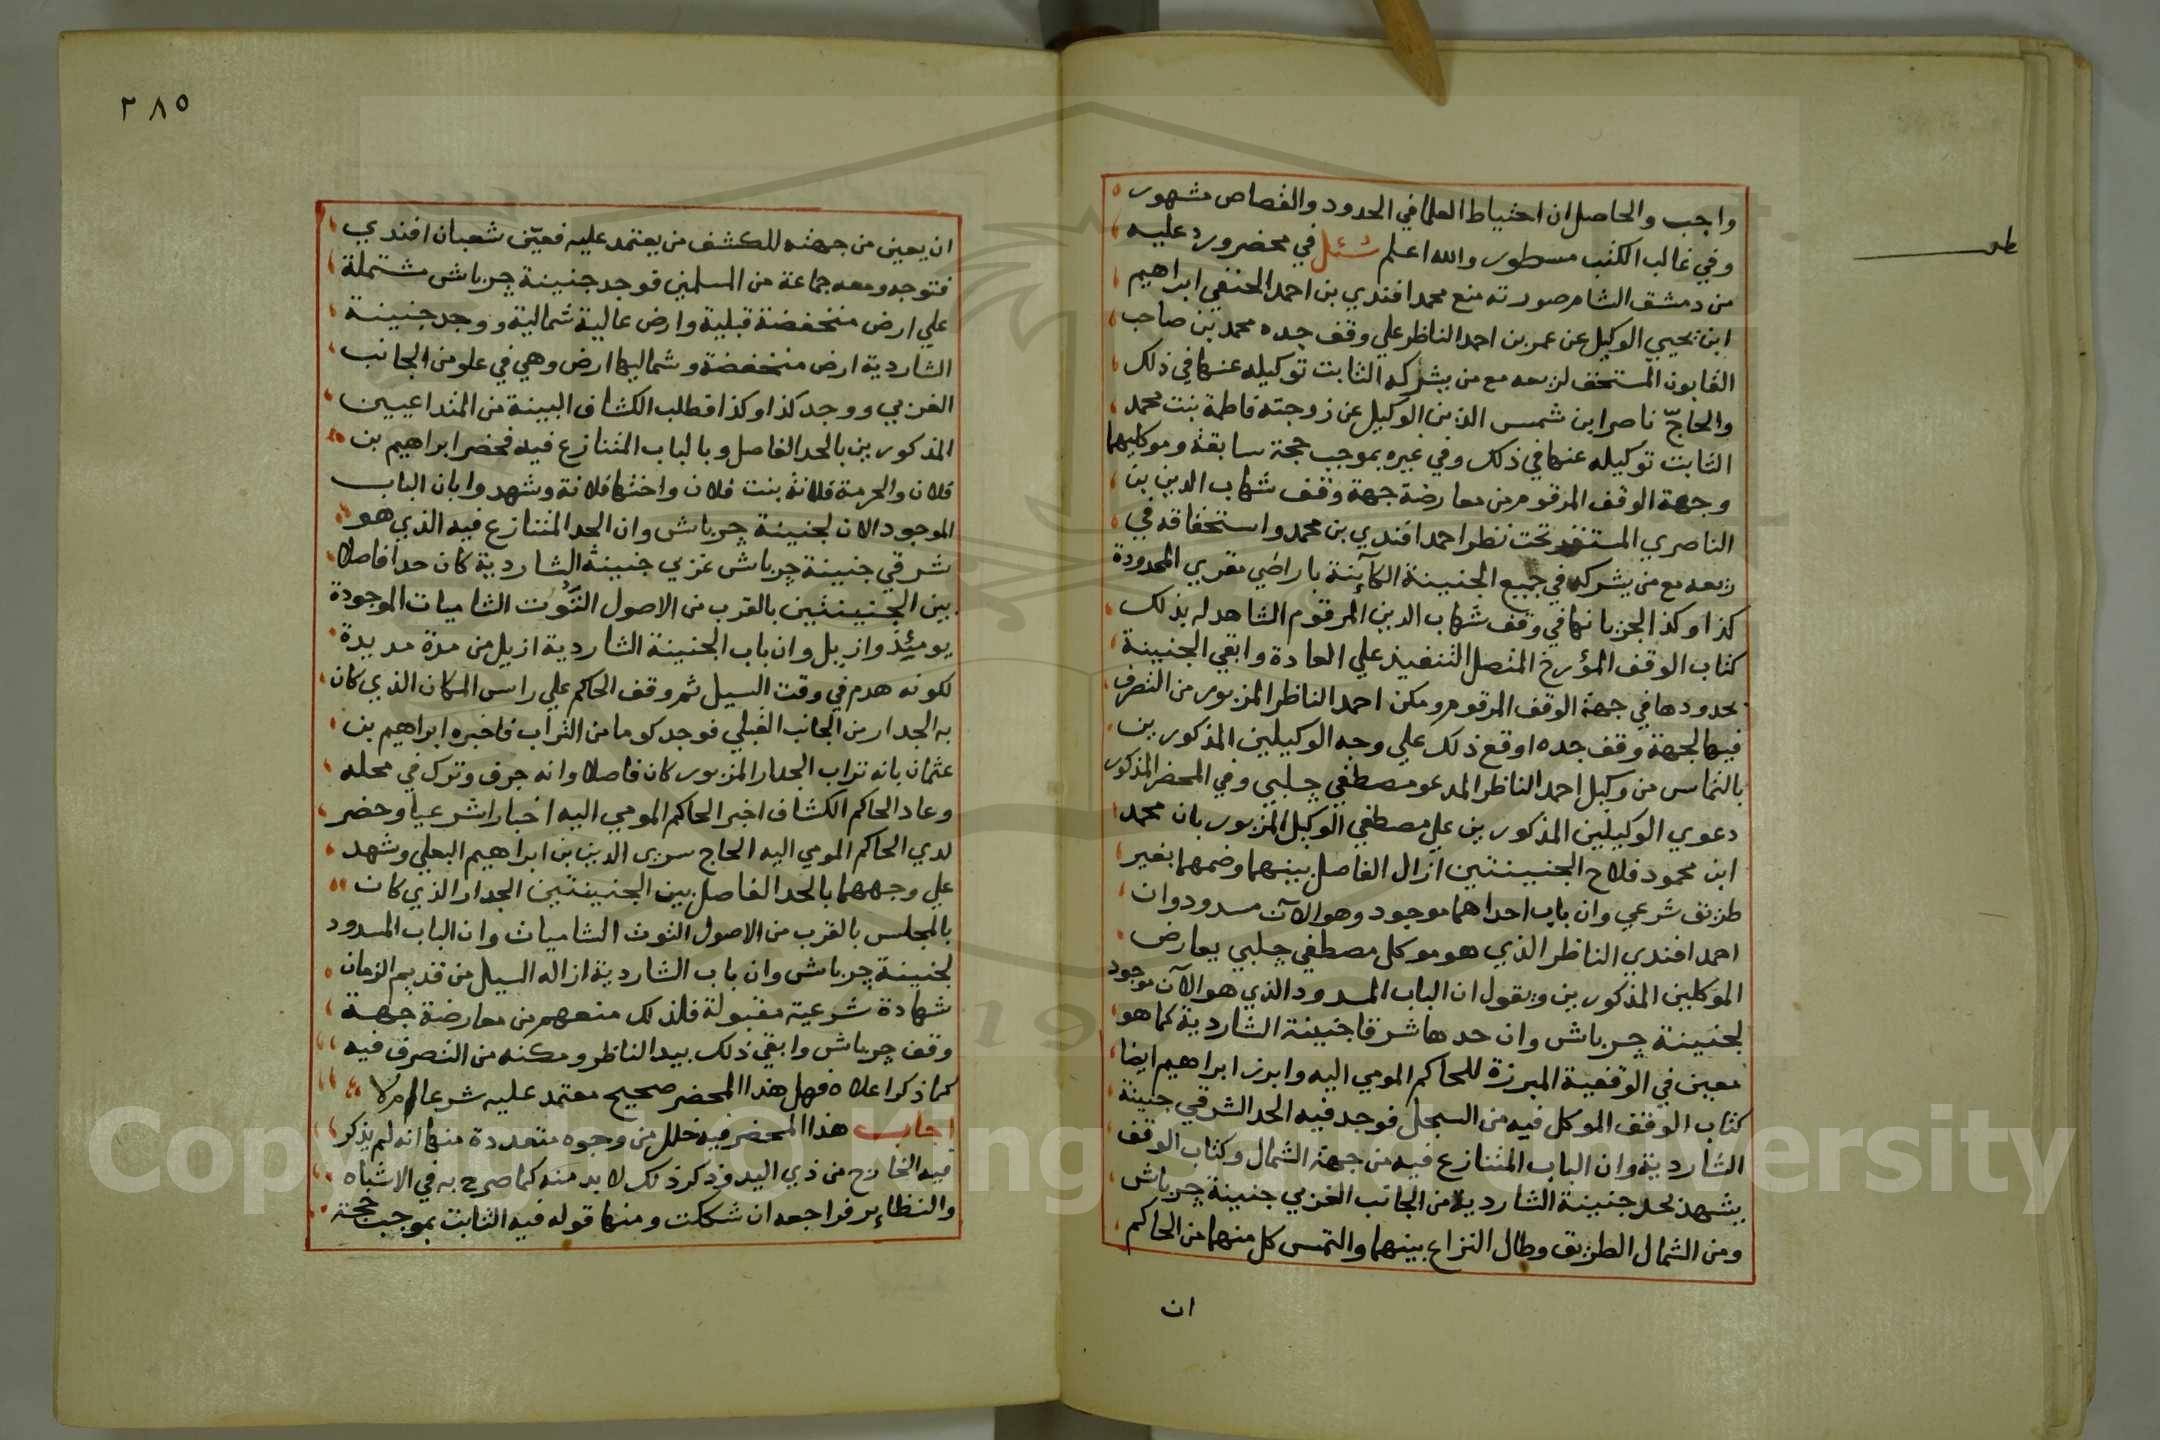 واجب والحاصل ان احتياط العلما في الحدود والقصاص مشهور
وفي غالب الكتب مسطور والله اعلم سئل في محضر ورد عليه
من دمشق الشام صورته منع محمد افندي بن احمد الحنفي ابراهيم
ابن يحيي الوكيل عن عمر بن احمد الناظر علي وقف جده محمد بن صاحب
القابون المستحق لريعه مع من يشركه الثابت توكيله عنها في ذلك
والحاج ناصر ابن شمس الدين الوكيل عن زوجته فاطمة بنت محمد
الثابت توكيله عنها في ذلك وفي غيره بموجب حجة سابقة وموكليهما
وجهة الوقف المرقوم من معارضة جهة وقف شهاب الدين بن
الناصري المستقر تحت نظر احمد افندي بن محمد واستحقاقه في
ريعه مع من يشركه في جميع الجنينة الكآينة باراضي مقري المحدودة
كذا وكذا الجريانها في وقف شهاب الدين المرقوم الشاهد له بذلك
كتاب الوقف المؤرخ المتصل التنفيذ علي العادة وابقي الجنينة
بحدودها في جهة الوقف المرقوم ومكن احمد الناظر المزبور من التصرف
فيها لجهة وقف جده اوقع ذلك علي وجه الوكيلين المذكورين
بالتماس من وكيل احمد الناظر المدعو مصطفي چلبي وفي المحضر المذكور
دعوي الوكيلين المذكورين علي مصطفي الوكيل المزبور بان محمد
ابن محمود فلاح الجنينتين ازال الفاصل بينهما وضمهما بغير
طريق شرعي وان باب احداهما موجود وهو الآن مسدود وان
احمد افندي الناظر الذي هو موكل مصطفي چلبي يعارض
الموكلين المذكورين ويقول ان الباب المسدود الذي هو الآن موجود
لجنينة چرباش وان حدها شرقا جنينة الشاردية كما هو
معين في الوقفية المبرزة للحاكم المومي اليه وابرز ابراهيم ايضا
كتاب الوقف الموكل فيه من السجل فوجد فيه الحد الشرقي جنينة
الشاردية وان الباب المتنازع فيه من جهة الشمال وكتاب الوقف
يشهد بحد جنينة الشاردية من الجانب الغربي جنينة چرباش
ومن الشمال الطريق وطال النزاع بينهما والتمس كل منهما من الحاكم
ان
٢٨٥
ان يعين من جهته للكشف من يعتمد عليه فعيّن شعبان افندي
فتوجه ومعه جماعة من المسلمين فوجد جنينة چرباش مشتملة
علي ارض منخفضة قبلية وارض عالية شمالية ووجد جنينة
الشاردية ارض منخفضة وشماليها ارض وهي في علو من الجانب
الغربي ووجد كذا وكذا فطلب الكشاف البينة من المتداعيين
المذكورين بالحد الفاصل وبالباب المتنازع فيه فحضر ابراهيم بن
فلان والحرمة فلانة بنت فلان واختها فلانة وشهدوا بان الباب
الموجود الان لجنينة چرباش وان الحد المتنازع فيه الذي هو
شرقي جنينة چرباش غربي جنينة الشاردية كان حدا فاصلا
بين الجنينتين بالقرب من الاصول التوت الشاميات الموجودة
يومئذ وازيل وان باب الجنينة الشاردية ازيل من مدة مديدة
لكونه هدم في وقت السيل ثم وقف الحاكم علي راس المكان الذي كان
به الجدار من الجانب القبلي فوجد كوما من التراب فاخبره ابراهيم بن
عثمان بانه تراب الجدار المزبور كان فاصلا وانه جرف وترك في محله
وعاد الحاكم الكشاف اخبر الحاكم المومي اليه اخبارا شرعيا وحضر
لدي الحاكم المومي اليه الحاج سري الدين بن ابراهيم البعلي وشهد
علي وجههما بالحد الفاصل بين الجنينتين الجدار الذي كان
بالمجلس بالقرب من الاصول التوت الشاميات وان الباب المسدود
لجنينة چرباش وان باب الشاردية ازاله السيل من قديم الزمان
شهادة شرعية مقبولة فلذلك منعهم من معارضة جهة
وقف چرباش وابقي ذلك بيد الناظر ومكنه من التصرف فيه
كما ذكر اعلاه فهل هذا المحضر صحيح معتمد عليه شرعا ام لا
اجاب هذا المحضر فيه خلل من وجوه متعددة منها انه لم يذكر
فيه الخارج من ذي اليد وذكر ذلك لا بد منه كما صرح به في الاشباه
والنظاير فراجعه ان شككت ومنها قوله فيه الثابت بموجب حجة